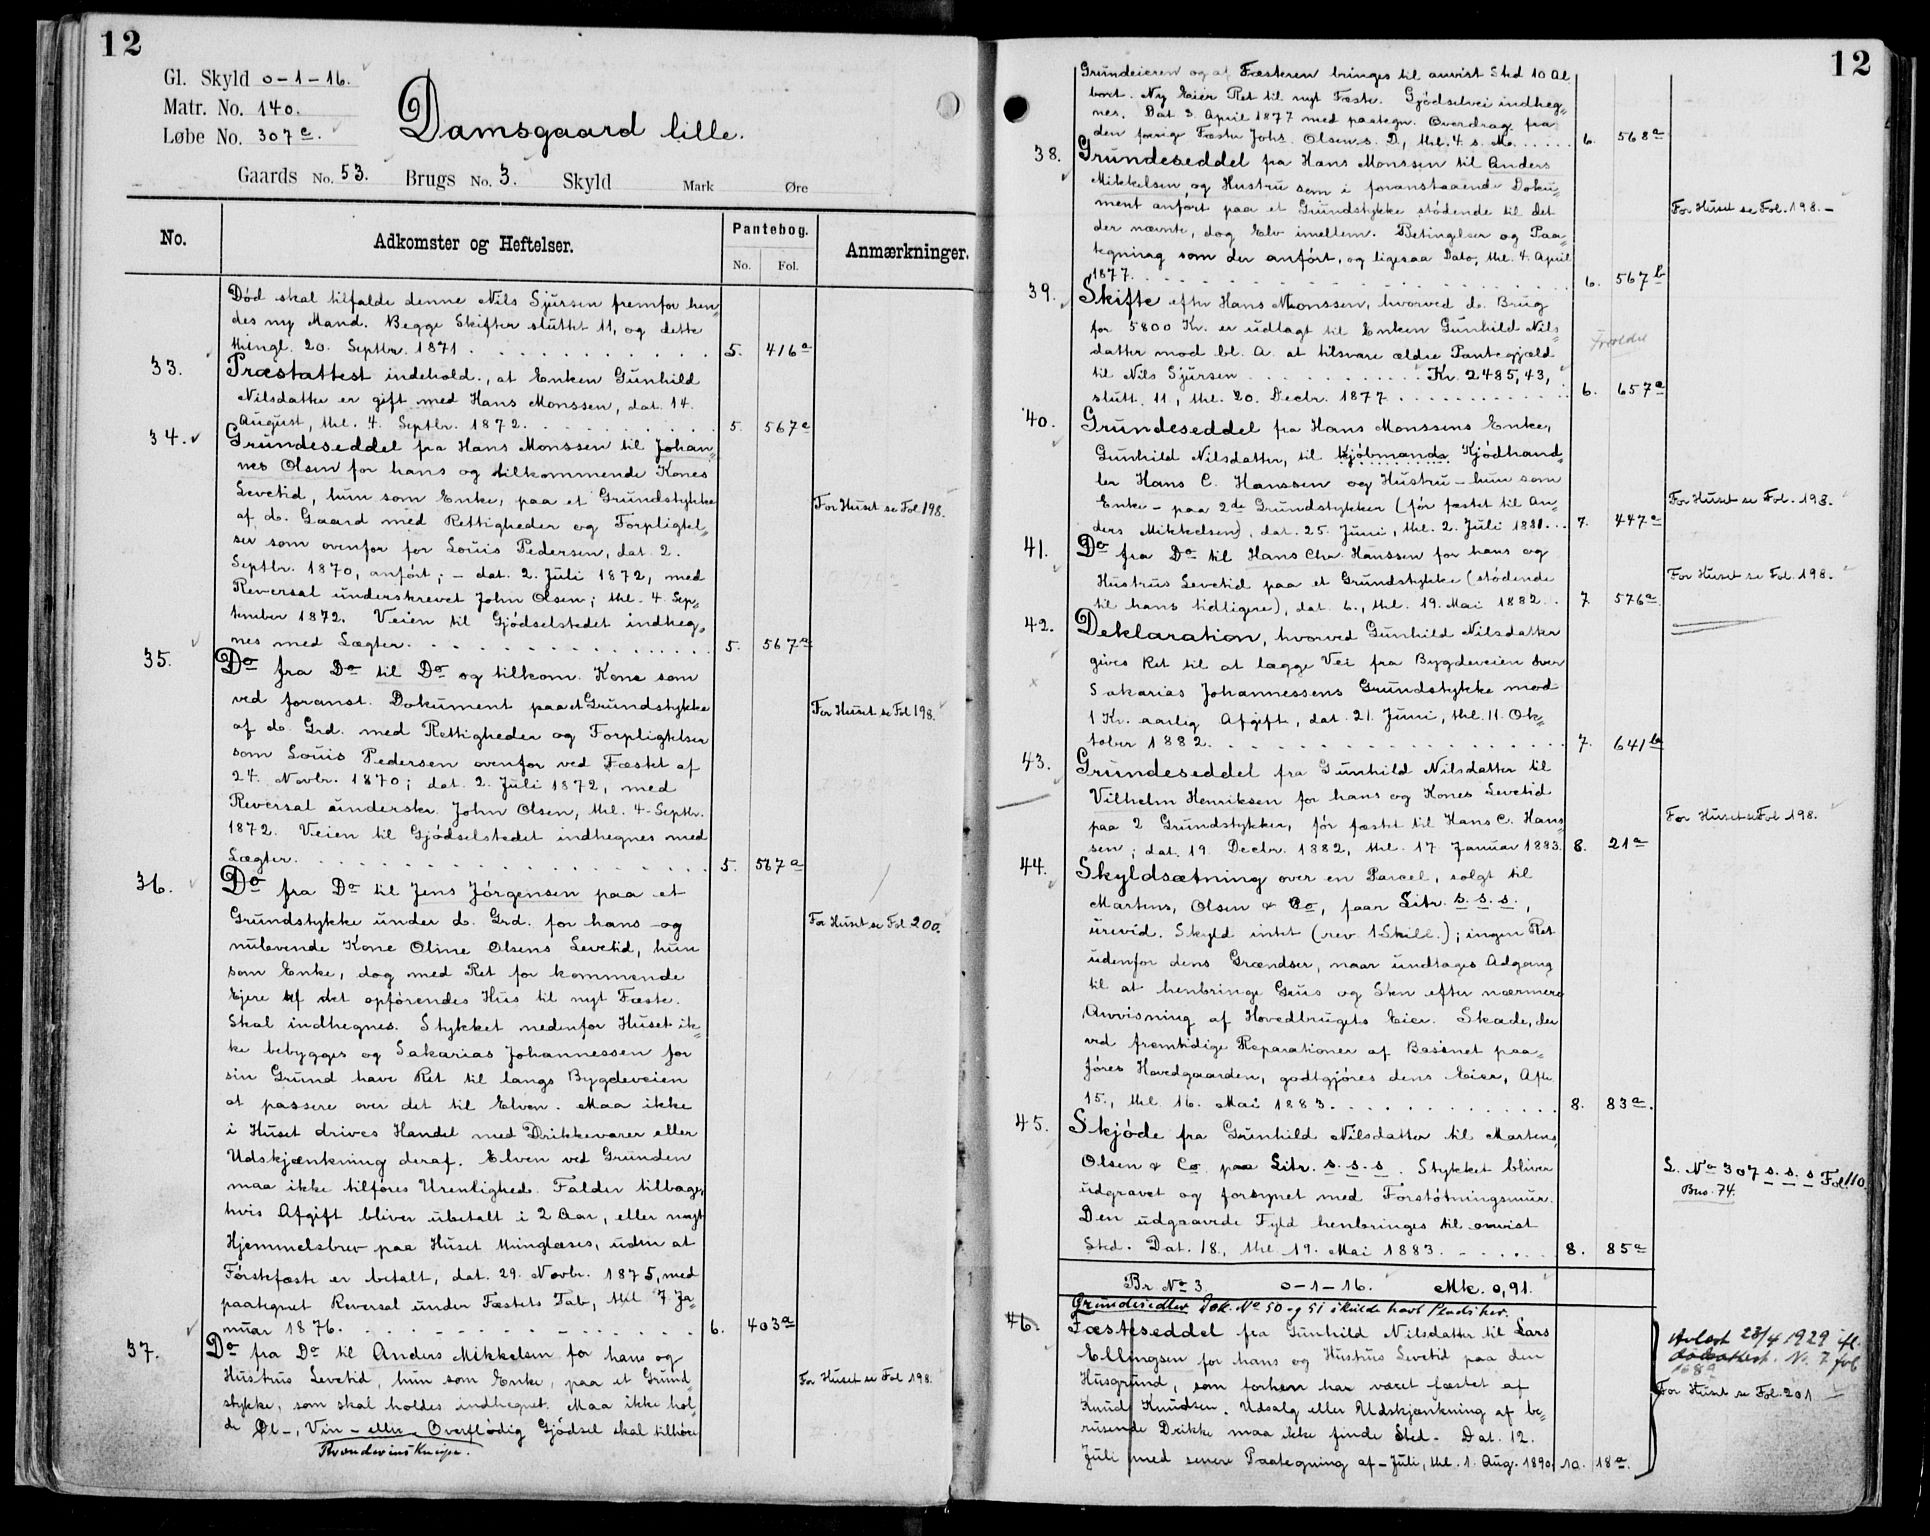 12
Gl. Skyld 0-1-16.
Matr. No. 140.
Løbe No. 307c.
Damsgaard lille.
Gaards No. 53. Brugs No. 3. Skyld Mark Øre
No. Adkomster og Heftelser. Pantebog. Anmærkninger.
No. Fol.
Død skal tilfalde denne Nils Sjursen fremfor hen„
des ny Mand. Begge Skifter sluttet 11, og dette
thingl. 20. Septbr. 1871. 5. 416a
33. Præstattest indehold., at Enken Gunhild
Nilsdatter er gift med Hans Monssen, dat. 14.
August, thl. 4. Septbr. 1872. 5. 567a
34. Grundeseddel fra Hans Monssen til Johan„
nes Olsen for hans og tilkommende Kones
Levetid, hun som Enke, paa et Grundstykke For Huset se Fol. 198.
af do. Gaard med Rettigheder og Forpligtel„
ser som ovenfor for Louis Pedersen, dat. 2.
Septbr. 1870, anført; – dat. 2. Juli 1872, med
Reversal underskrevet John Olsen; thl. 4. Sep„
tember 1872. Veien til Gjødselstedet indheg„
nes med Lægter. 5. 567a
35. Do fra Do til Do og tilkom. Kone som
ved foranst. Dokument paa et Grundstykke For Huset se Fol. 198.
af do. Grd. med Rettigheder og Forpligtelser
som Louis Pedersen ovenfor ved Fæstet af
24. Novbr. 1870; dat. 2. Juli 1872, med
Reversal underskr. John Olsen, thl. 4. Septbr.
1872. Veien til Gjødselstedet indhegnes med
Lægter. 5. 567a
36. Do fra Do til Jens Jørgensen paa et
Grundstykke under do. Grd. for hans og For Huset se Fol. 200.
nulevende Kone Oline Olsens Levetid, hun
som Enke, dog med Ret for kommende
Ejere af det opførendes Hus til nyt Fæste.
Skal indhegnes. Stykket nedenfor Huset ik„
ke bebygges og Sakarias Johannessen for
sin Grund have Ret til langs Bygdeveien
at passere over det til Elven. Maa ikke
i Huset drives Handel med Drikkevarer eller
Udskjænkning deraf. Elven ved Grunden
maa ikke tilføres Urenlighed. Falder tilbage,
hvis Afgift bliver ubetalt i 2 Aar, eller nyt
Hjemmelsbrev paa Huset thinglæses, uden at
Førstefæste er betalt, dat. 29. Novbr. 1875, med
paategnet Reversal under Fæstets Tab, thl. 7 Ja„
nuar 1876. 6. 403a
37. Do fra Do til Anders Mikkelsen for hans og
Hustrus Levetid, hun som Enke, paa et Grund„ For Huset se Fol 198.
stykke, som skal holdes indhegnet. Maa ikke hol„
de Øl-, Vin- eller Overflødig Gjødsel skal tilhøre
Brændevinskneipe.
12
Grundeieren og af Fæsteren bringes til anvist Sted 10 Al
bort. Ny Eier Ret til nyt Fæste. Gjødselvei indheg„
nes. Dat 3. April 1877 med paategn. Overdrag. fra
den forrige Fæster Johs. Olsen s. D., thl. 4. s. M. 6. 568a
38. Grundeseddel fra Hans Monssen til Anders
Mikkelsen og Hustru som i foranstaaende Doku„
ment anført paa et Grundstykke stødende til det For Huset se Fol. 198. –
der nævnte, dog Elv imellem. Betingelser og Paa„
tegning som der anført, og ligesaa Dato, thl. 4. April
1877. 6. 567b
39. Skifte efter Hans Monssen, hvorved do. Brug
for 5800 Kr. er udlagt til Enken Gunhild Nils
datter mod bl. A. at tilsvare ældre Pantegjæld
til Nils Sjursen Kr. 2485,43,
slutt. 11, thl. 20. Decbr. 1877 6. 657a
40. Grundeseddel fra Hans Monssens Enke,
Gunhild Nilsdatter, til Kjöbmands Kjødhand„
ler Hans C. Hanssen og Hustru – hun som
Enke – paa 2de Grundstykker (før fæstet til An„ For Huset se Fol. 198.
ders Mikkelsen), dat. 25. Juni, thl. 2. Juli 1881. 7. 447a
41. Do fra Do til Hans Chr. Hanssen for hans og
Hustrus Levetid paa et Grundstykke (stødende For Huset se Fol. 198.
til hans tidligere), dat. 6., thl. 19. Mai 1882. 7. 576a
42. Deklaration, hvorved Gunhild Nilsdatter
gives Ret til at lægge Vei fra Bygdeveien over
Sakarias Johannessens Grundstykke mod
1 Kr. aarlig Afgift, dat. 21. Juni, thl. 11. Ok„
tober 1882. 7. 641b
43. Grundeseddel fra Gunhild Nilsdatter til
Vilhelm Henriksen for hans og Kones Levetid
paa 2 Grundstykker, før fæstet til Hans C. Hans„ For Huset se Fol 198.
sen; dat. 19. Decbr. 1882, thl. 17. Januar 1883. 8. 21a
44. Skyldsætning over en Parcel, solgt til
Martens, Olsen & Co, faar Litr. s. s. s.,
urevid. Skyld intet (rev. 1 Skill.); ingen Ret
udenfor dens Grændser, naar undtages Adgang
til at henbringe Grus og Sten efter nærmere
Anvisning af Hovedbrugets Eier. Skade, der
ved fremtidige Reparationer af Basinet paa„
føres Hovedgaarden, godtgjøres dens Eier, Afh.
15., thl. 16. Mai 1883. 8. 83a.
45. Skjøde fra Gunhild Nilsdatter til Martens,
Olsen & Co. paa Litr. s. s. s. Stykket bliver L. No 307 s. s. s Fol. 110
udgravet og forsynet med Forstøtningsmur. Bno. 74.
Den udgravede Fyld henbringes til anvist
Sted. Dat. 18., thl. 19. Mai 1883. 8. 85a
Br. No 3 0-1-16. Mk. 0,91.
Grundesedler Dok. No 50 og 51
46. Fæsteseddel fra Gunhild Nilsdatter til Lars Avlæst 23/4 1929 ifl.
Ellingsen for hans og Hustrus Levetid paa den No. 7 fol
Husgrund, som forhen har været fæstet af For Huset se Fol. 201
Knud Knudsen. Udsalg eller Udskjænkning af be„
rusende Drikke maa ikke finde Sted. Dat. 12.
Juli med senere Paategning af – Juli, thl. 1. Aug. 1890. 10. 18a.